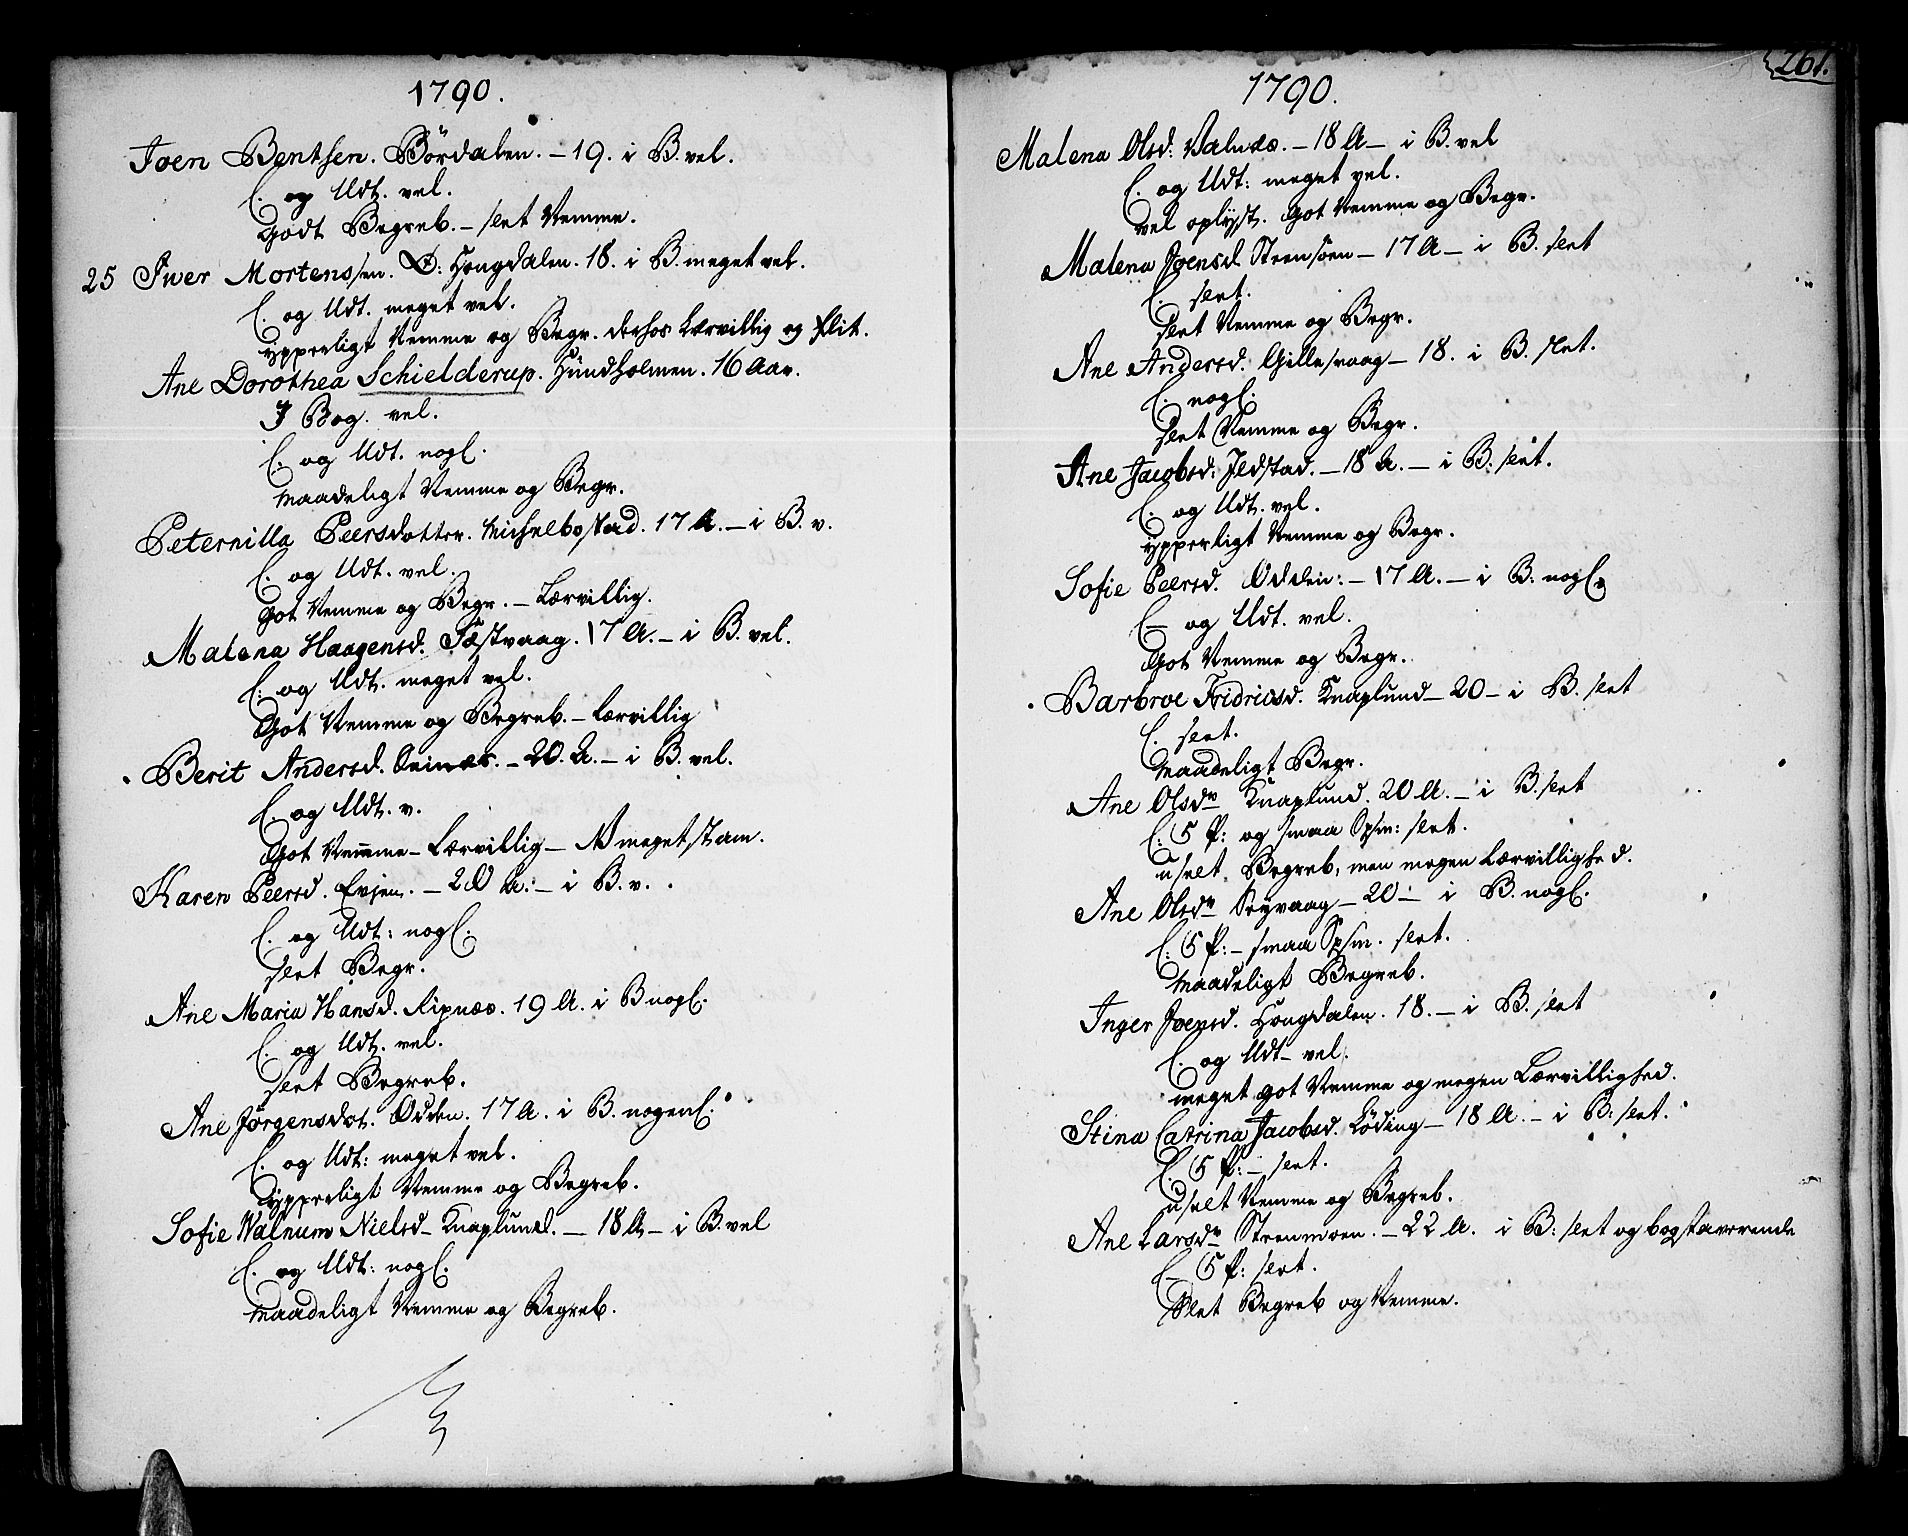 1790.
Joen Bentsen. Bördalen. – 19. i B. vel.
C. og Udt. vel.
Godt Begreb. – slet Nemme.
25 Iwer Mortenssen. Ø: Hougdalen. 18. i B. meget vel.
C. og Udt. meget vel.
ypperligt Nemme og Begr. derhos Lærvillig og flit.
Ane Dorothea Schielderup. Hundholmen. 16 Aar.
I Bog. vel.
C. og Udt. nogl.
maadeligt Nemme og Begr.
Peternilla Peersdatter. Michelbostad. 17 A. – i B. v.
C. og Udt. vel.
Got Nemme og Begr. – Lærvillig.
Malena Haagensd. Fæstvaag. 17 A. – i B. vel.
C: og Udt. meget vel.
Got Nemme og Begreb. – Lærvillig
Berit Andersd. Seines. – 20. A. – i B. vel.
C. og Udt. v.
Got Nemme – Lærvillig – N meget stam.
Karen Peersd. Evjen. – 20 A. – i B. v.
C. og Udt: nogl.
slet Begr.
Ane Maria Hansd. Ripnæs. 19 A. i B nogl.
C. og Udt. vel.
slet Begreb.
Ane Jörgensdat. Odden. 17 A. i B. nogenl.
C. og Udt: meget vel.
ypperligt Nemme og Begreb.
Sofie Walnum Nielsd – Knaplund. – 18 A – i B. vel
C. og Udt: nogl.
maadeligt Nemme og Begreb.
261.
1790.
Malena Olsd: Valnæs. – 18 A – i B. vel
C. og Udt: meget vel.
vel oplyst. Got Nemme og Begr.
Malena Joensd. Strensöen – 17 A – i B. slet
C. slet.
slet Nemme og Begr.
Ane Andersd. Gillesvaag – 18. i B. slet.
C. nogl.
slet Nemme og Begr.
Ane Jacobsd: Ildstad. – 18 A. – i B: slet.
C. og Udt. vel.
ypperligt Nemme og Begr.
Sofie Peersd. Odden: – 17 A. – i B: nogl.
C – og Udt. vel.
Got Nemme og Begr.
Barbroe Fridricsd. Knaplund – 20 – i B. slet
C. slet.
Maadeligt Begr.
Ane Olsdr Knaplund. 20 A. – i B. slet
C. 5 P: og smaa Spsm: slet.
uselt Begreb, men megen Lærvillighed.
Ane Olsdr Seyvaag – 20 – i B. nogl.
C: 5 P: – smaa Spsm. slet.
Maadeligt Begreb.
Inger Joensd. Hougdalen. 18. – i B. slet
C. og Udt – vel.
meget got Nemme og megen Lærvillighed.
Stina Catrina Jacobsd. Löding – 18 A. – i B: slet.
C. 5 P: – slet.
uselt Nemme og Begreb.
Ane Larsdr Strenmoen. – 22 A. i B: slet og bogstaverende
C – 5 P: slet.
Slet Begreb og Nemme.